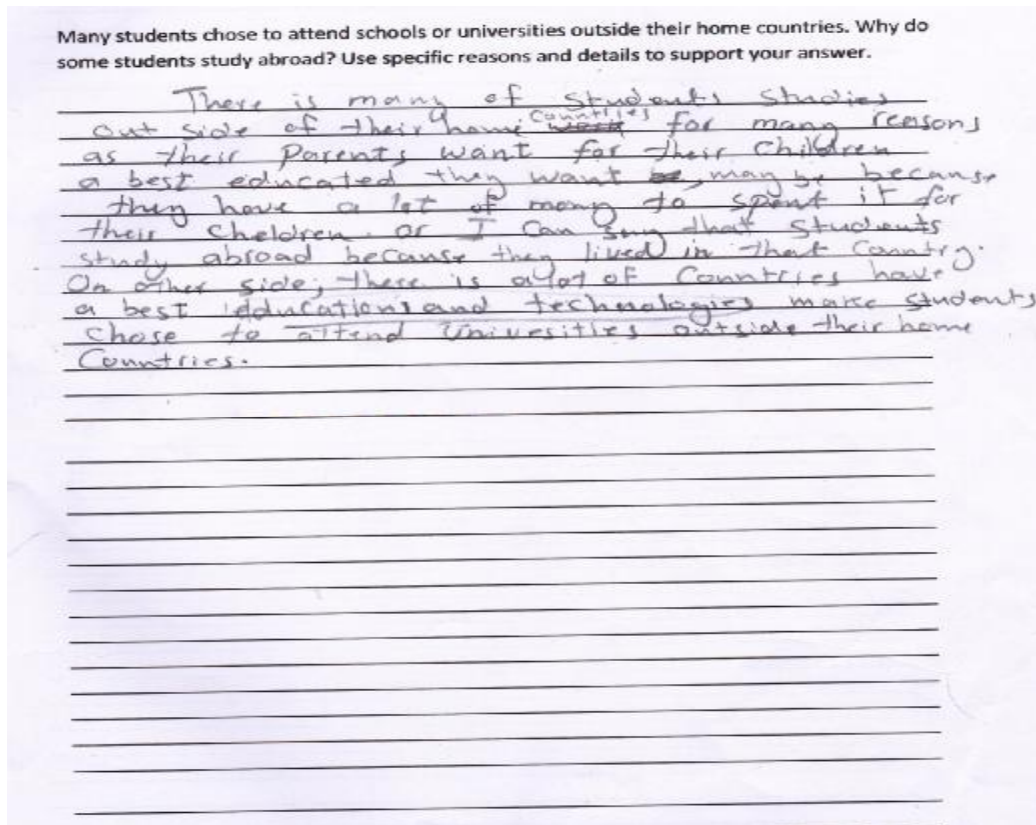 Many students chose to attend schools or universities outside their home countries. Why do
some students study abroad? Use specific reasons and details to support your answer.
There is many of students studies
out side of their home countries for many reasons
as their parents want for their children
a best educated they want, may be because
they have a lot of mony to spent it for
their cheldren. or I can say that students
study abroad because they lived in that country.
On other side, there is a lot of countries have
a best edducations and technologies make students
chose to attend univesitties outside their home
countries.